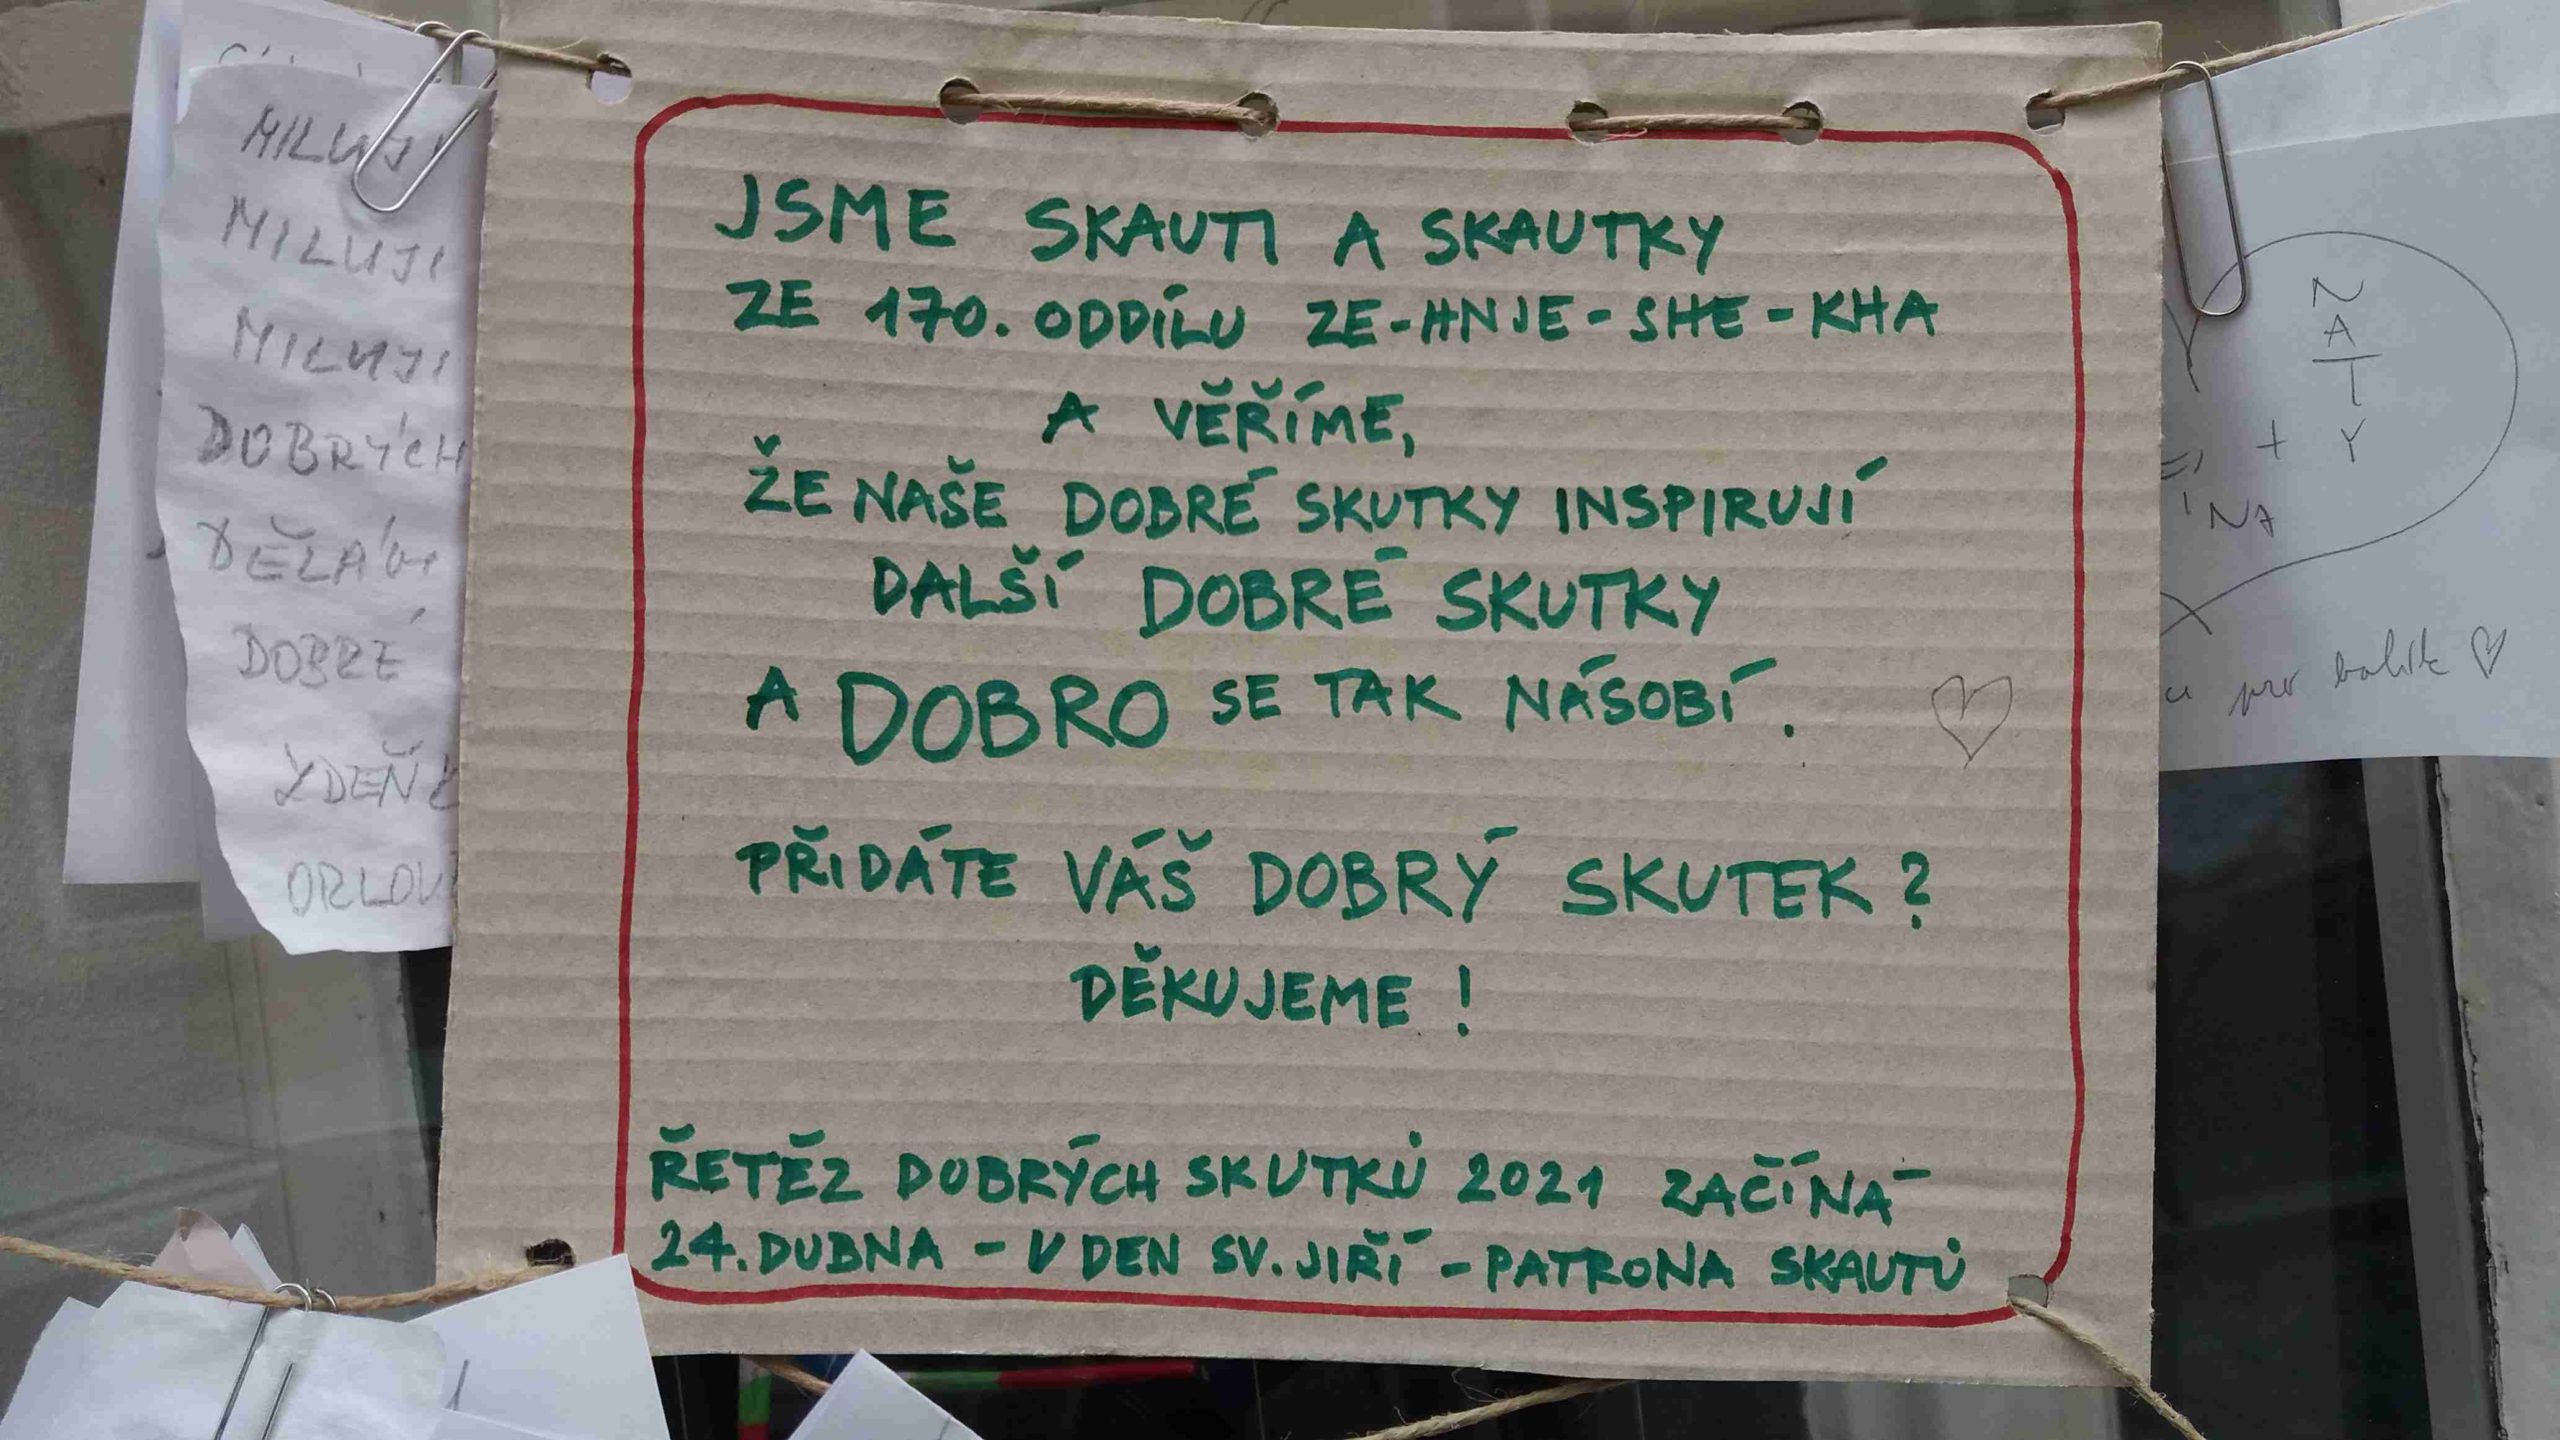 MILUJI
MILUJI
MILUJI
DOBRÝCH
DOBRÉ
JSME SKAUTI A SKAUTKY
ZE 170. ODDÍLU ZE-HNJE-SHE-KHA
A VĚŘÍME,
ŽE NAŠE DOBRÉ SKUTKY INSPIRUJÍ
DALŠÍ DOBRÉ SKUTKY
A DOBRO SE TAK NÁSOBÍ.
PŘIDÁTE VÁŠ DOBRÝ SKUTEK?
DĚKUJEME!
ŘETĚZ DOBRÝCH SKUTKŮ 2021 ZAČÍNÁ
24. DUBNA - V DEN SV. JIŘÍ - PATRONA SKAUTŮ
NATY
+
pro